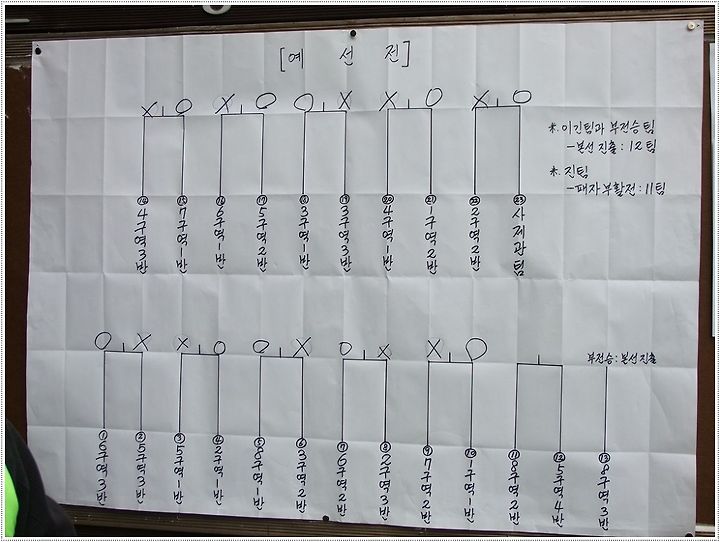 [예 선 전]
X O X O O X X O X O
※ 이긴팀과 부전승팀
-본선진출: 12팀
※ 진팀
-패자부활전: 11팀
⑭ 4구역3반
⑮ 7구역1반
⑯ 6구역1반
⑰ 5구역2반
3구역1반
⑲ 3구역3반
⑳ 4구역1반
㉑ 1구역2반
㉒ 2구역2반
㉓ 사제관팀
O X X O O X O X X O
부전승: 본선진출
① 6구역3반
② 5구역3반
③ 5구역1반
④ 2구역1반
⑤ 8구역1반
⑥ 3구역2반
⑦ 6구역2반
⑧ 2구역3반
⑨ 7구역2반
⑩ 1구역1반
⑪ 8구역2반
⑫ 5구역4반
⑬ 8구역3반